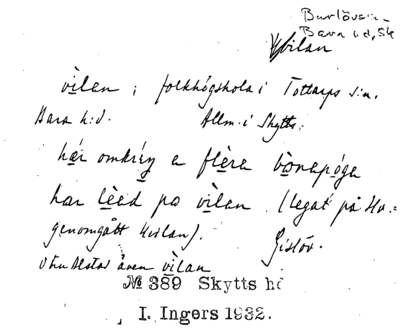 Burlövs-
Bara hd, Sk
Vilan
vilan, folkhögskola i Tottarps s:n.
Bara h:d. Allm. i Skytts:
här omkrẹng a flera bonapöga
har leed po vilan. (legat på Hv.=
genomgått Hvilan). Gislöv.
även vilan
№ 389 Skytts h
I. Ingers 1932.